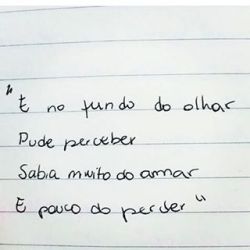 "E no fundo do olhar
Pude perceber
Sabia muito do amar
E pouco do perder"